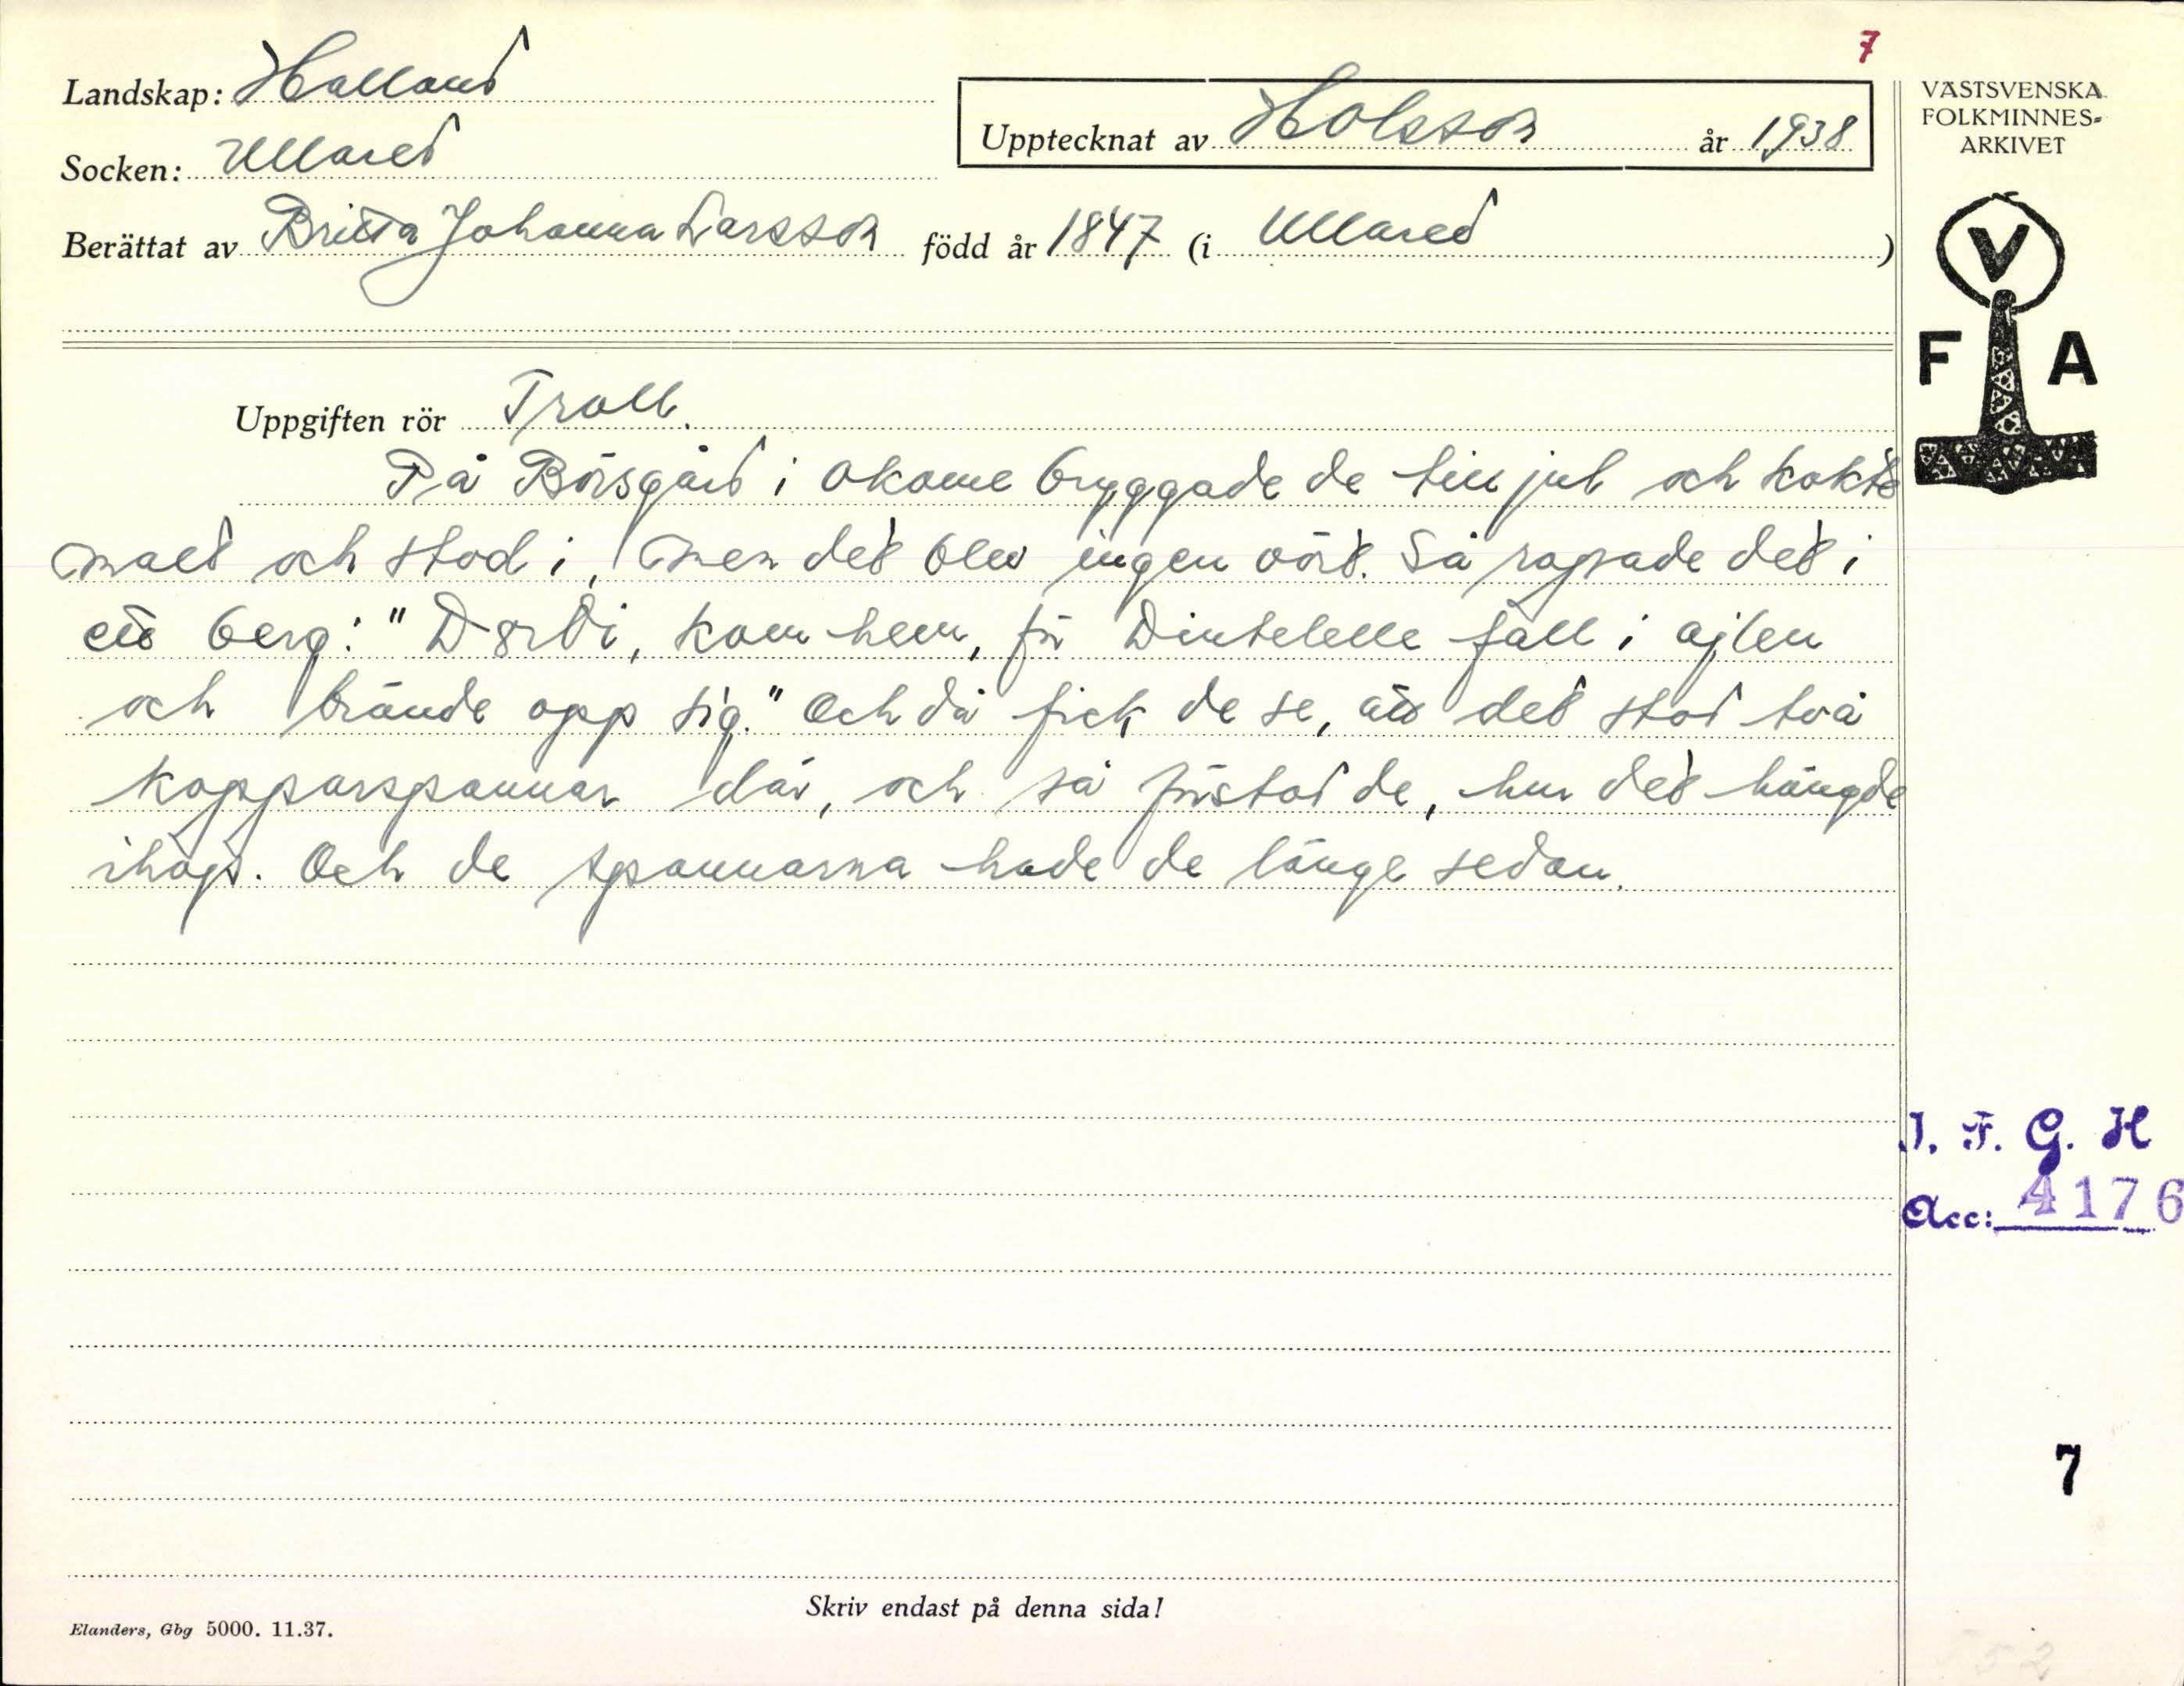 7
Landskap: Halland
Upptecknat av HOlsson år 1938
VÄSTSVENSKA
FOLKMINNES-
ARKIVET
Socken: Ullared
Berättat av Britta Johanna Larsson född år 1847 (i Ullared )
V
F A
Uppgiften rör Troll.
På Börsgård i Okome bryggade de till jul och kokte
malt och stod i, men det blev ingen vört. Så ropade det i
ett berg: " kom hem, för Dintelelle fall i ajlen
och brände opp sig." Och då fick de se, att det stod två
kopparspannar där, och så förstod de, hur det hängde
ihop. Och de spannarna hade de länge sedan.
I. F. G. H
Acc: 4176
7
Skriv endast på denna sida!
Elanders, Gbg 5000. 11.37.